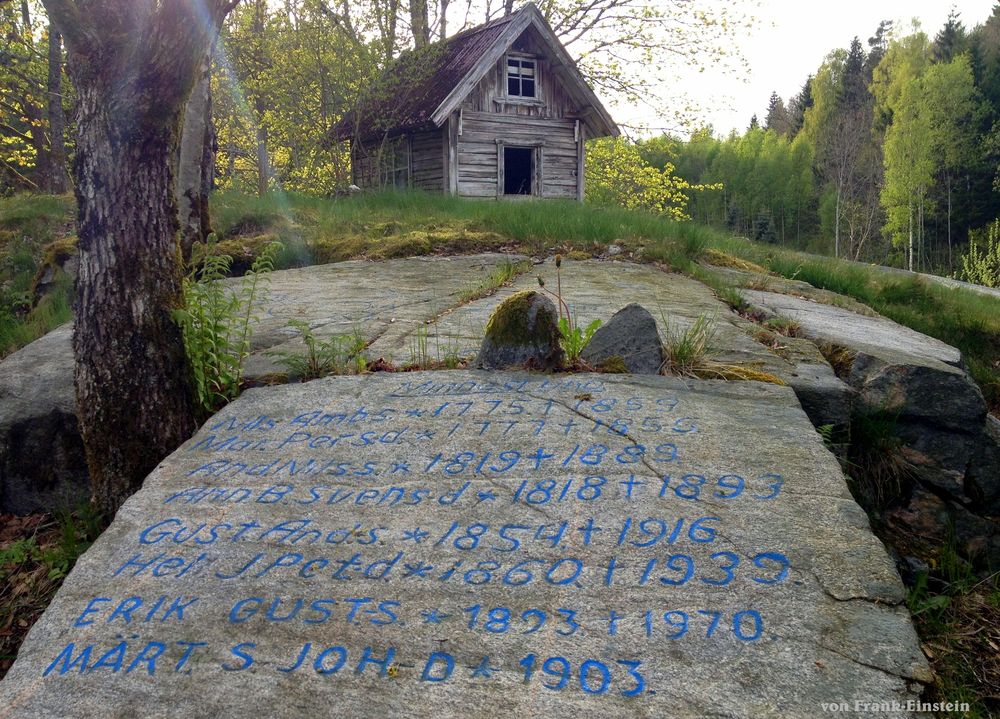 Nils Ambs * 1775 + 1859
Mar. Persd. * 1777 + 1855
And Nilss. * 1819 + 1889
Ann B. Svens.d * 1818 + 1893
Gust Ands. * 1854 + 1916
Hel. J Petd. * 1860. + 1939
ERIK GUSTS. * 1893. + 1970.
MÄRT. S JOH-D * 1903.
von Frank-Einstein